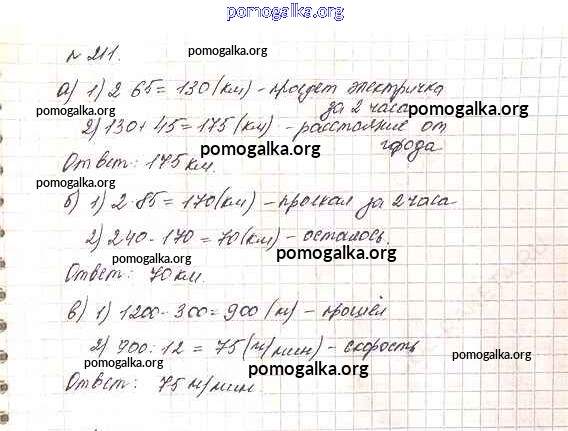 pomogalka.org
№ 211.
pomogalka.org
а) 1) 2·65 = 130 (км) - проедет электричка
за 2 часа
pomogalka.org
pomogalka.org
2) 130 + 45 = 175 (км) - расстояние от
города
pomogalka.org
Ответ: 175 км.
pomogalka.org
б) 1) 2·85 = 170 (км) - проехал за 2 часа
pomogalka.org
2) 240 - 170 = 70 (км) - осталось.
pomogalka.org
pomogalka.org
Ответ: 70 км.
в) 1) 1200 - 300 = 900 (м) - прошёл
pomogalka.org
2) 900 : 12 = 75 (м/мин) - скорость
pomogalka.org
pomogalka.org
Ответ: 75 м/мин.
pomogalka.org